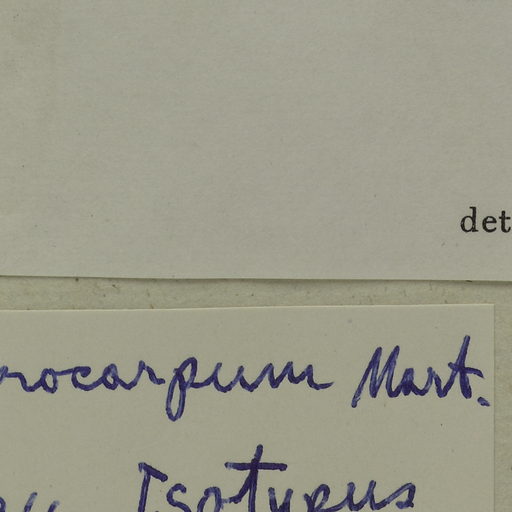 det
rocarpum Mart.
Isotypus